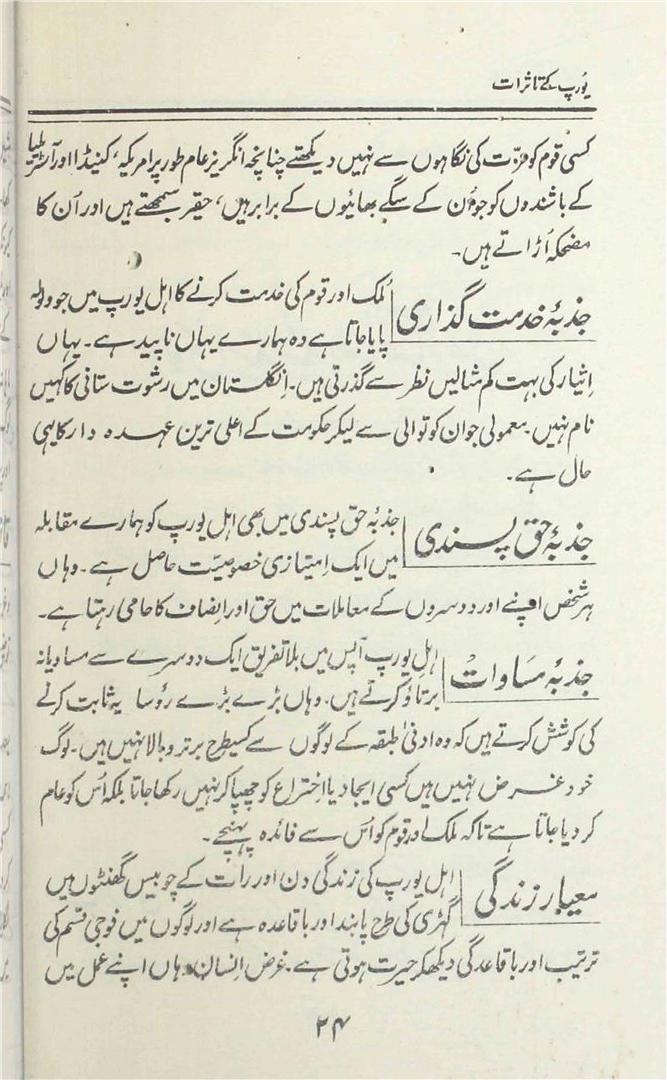 یورپ کے تاثرات
کسی قوم کو عزّت کی نگاہوں سے نہیں دیکھتے چنانچہ انگریز عام طور پر امریکہ، کنیڈا اور آسٹریلیا
کے باشندوں کو جو اُن کے سگے بھائیوں کے برابر ہیں، حقیر سمجھتے ہیں اور اُن کا
مضحکہ اُڑاتے ہیں۔
جذبۂ خدمت گذاری
مُلک اور قوم کی خدمت کرنے کا اہل یورپ میں جو ولولہ
پایا جاتا ہے وہ ہمارے یہاں ناپید ہے۔ یہاں
اِثیار کی بہت کم مثالیں نظر سے گذرتی ہیں۔ اِنگلستان میں رشوت ستانی کا کہیں
نام نہیں۔ معمولی جوان کوتوالی سے لیکر حکومت کے اعلی ترین عہدہ دار کا یہی
حال ہے۔
جذبۂ حق پسندی
جذبۂ حق پسندی میں بھی اہل یورپ کو ہمارے مقابلہ
میں ایک اِمتیازی خصوصیّت حاصل ہے۔ وہاں
ہر شخص اپنے اور دوسروں کے معاملات میں حق اور اِنصاف کا حامی رہتا ہے۔
جذبۂ مساوات
اہل یورپ آپس میں بلا تفریق ایک دوسرے سے مساویانہ
برتاؤ کرتے ہیں۔ وہاں بڑے بڑے رؤسا یہ ثابت کرنے
کی کوشش کرتے ہیں کہ وہ ادنیٰ طبقہ کے لوگوں سے کسیطرح برتر و بالا نہیں ہیں۔ لوگ
خود غرض نہیں ہیں کسی ایجاد یا اختراع کو چھپا کر نہیں رکھا جاتا بلکہ اُس کو عام
کر دیا جاتا ہے تاکہ ملک اور قوم کو اُس سے فائدہ پہنچے۔
معیار زندگی
اہل یورپ کی زندگی دن اور رات کے چوبیس گھنٹوں میں
گھڑی کی طرح پابند اور باقاعدہ ہے اور لوگوں میں فوجی قسم کی
ترتیب اور باقاعدگی دیکھکر حیرت ہوتی ہے۔ غرض اِنسان وہاں اپنے عمل میں
۲۴